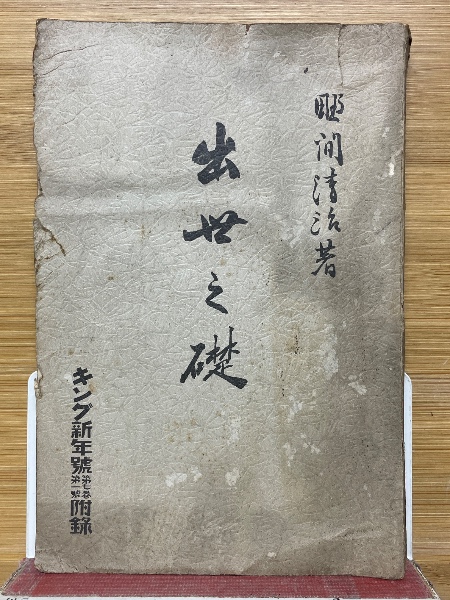 野間清治著
出世之礎
キング新年號第七卷第一號附錄